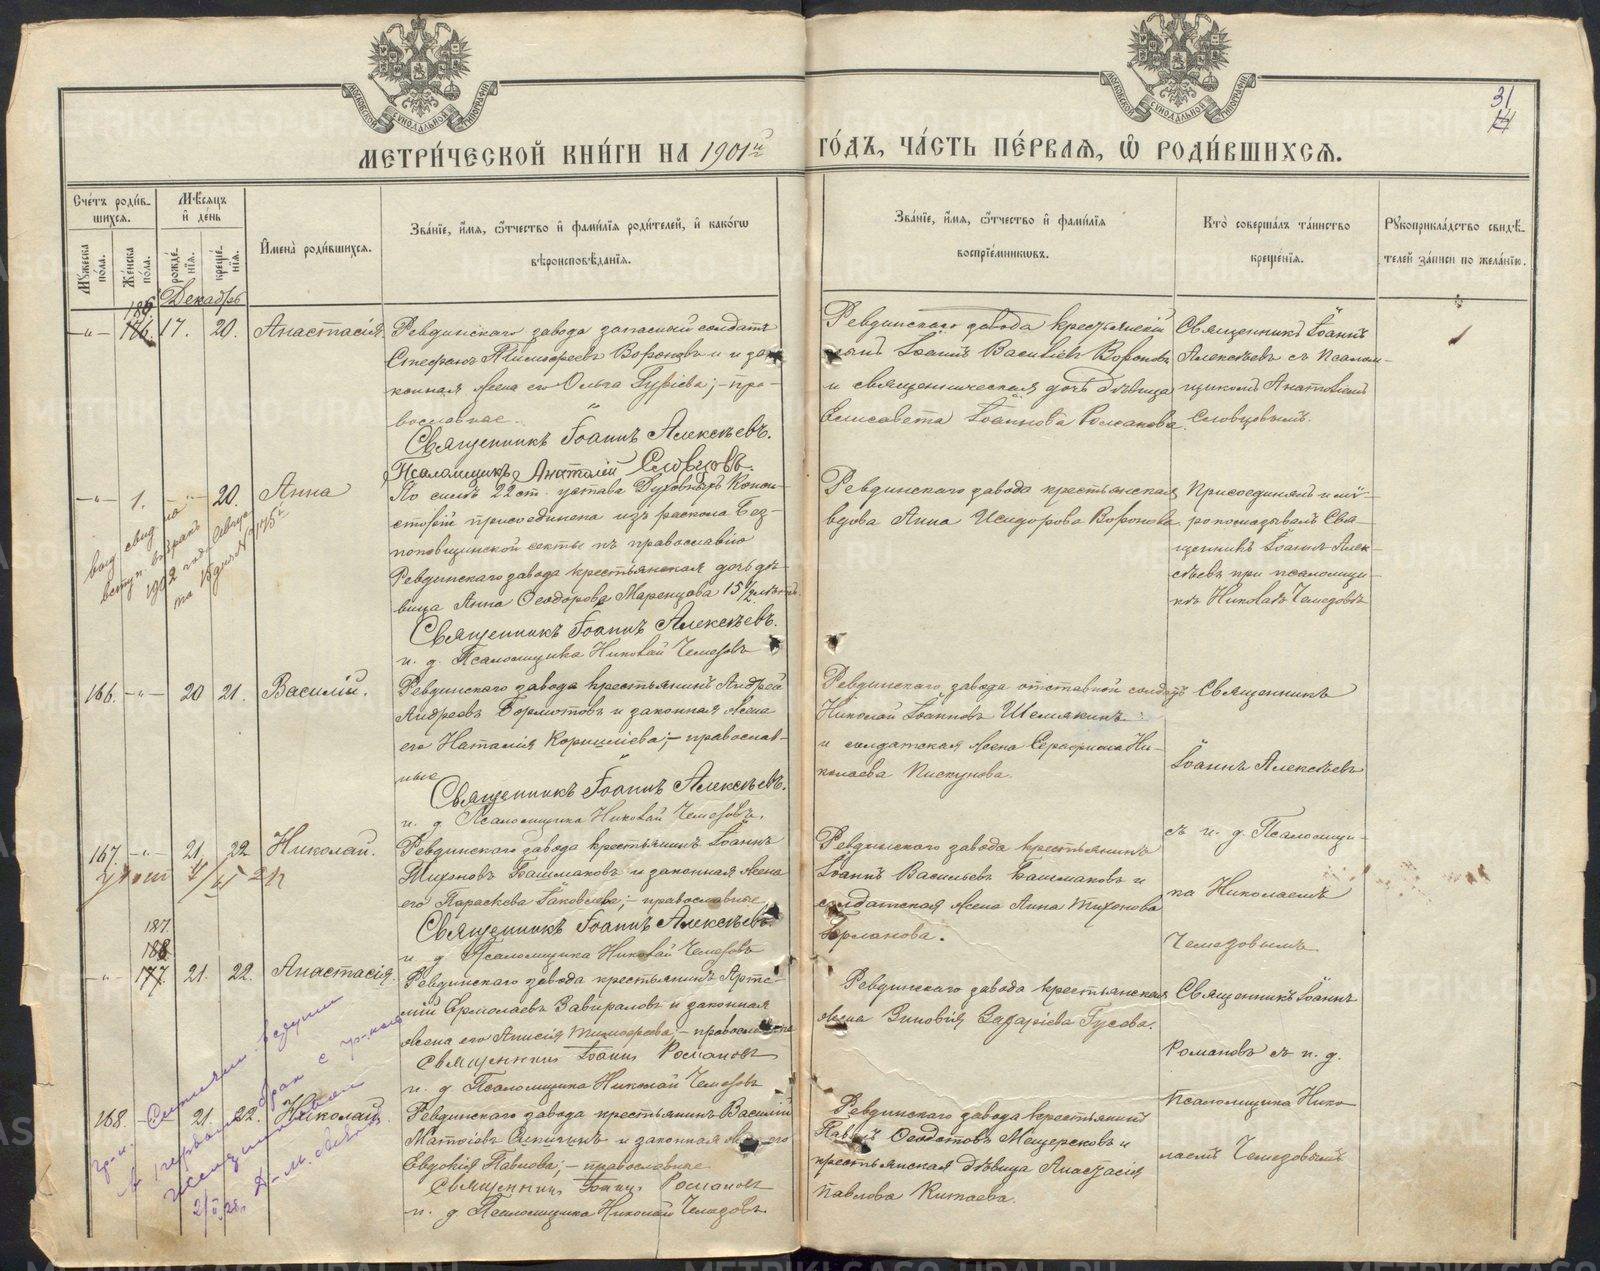 31
МЕТРИ́ЧЕСКОЙ КНИ́ГИ НА 1901й
ГО́ДЪ, ЧА́СТЬ ПЕ́РВАЯ, Ѡ РОДИ́ВШИХСЯ.
Сче́тъ роди́в-
шихся.
Мѣ́сяцъ
и҆ де́нь
Му́жеска по́ла.
Же́нска по́ла.
рожде́нїя.
креще́нїя.
И҆мена̀ роди́вшихся.
Зва́нїе, и҆́мя, ѻ҆́тчество и҆ фами́лїя роди́телей, и҆ како́гѡ
вѣроисповѣ́данїя.
Зва́нїе, и҆́мя, ѻ҆́тчество и҆ фами́лїя
воспрїе́мникѡвъ.
Кто̀ соверша́лъ та́инство
креще́нїя.
Рꙋкоприкла́дство свидѣ́-
телей за́писи по жела́нїю.
Декабрь
186.
-"- 17. 20. Анастасія.
Ревдинскаго завода запасный солдатъ
Стефанъ Тимофеевъ Вороновъ и за-
конная жена его Ольга Гурьева; - пра-
вославные.
Священникъ Іоаннъ Алексѣевъ.
Псаломщикъ Анатолій Словцовъ.
Ревдинскаго завода крестьянскій
Іоаннъ Василіевъ Вороновъ
и священническая дочь дѣвица
Елисавета Іоаннова Романова.
Священникъ Іоаннъ
Алексѣевъ съ псалом-
щикомъ Анатоліемъ
Словцовымъ.
-"- 1. -"- 20. Анна
По силѣ 22 ст. устава Духовныхъ Конси-
сторій присоединена изъ раскола Без-
поповщинской секты къ православію
Ревдинскаго завода крестьянская дочь дѣ-
вица Анна Ѳеодорова Маренцова 15 1/2 лѣтъ.
Священникъ Іоаннъ Алексѣевъ.
и. д. Псаломщика Николай Чемезовъ
Ревдинскаго завода крестьянская
вдова Анна Исидорова Воронова
Присоединялъ и мѵ-
ропомазывалъ Свя-
щенникъ Іоаннъ Алек-
сѣевъ при псаломщи-
кѣ Николаѣ Чемезовѣ
выд. свид. на
вступ. въ бракъ
1902 года
166. -"- 20 21. Василій.
Ревдинскаго завода крестьянинъ Андрей
Андреевъ Бормотовъ и законная жена
его Наталія Корниліева; - православ-
ные
Священникъ Іоаннъ Алексѣевъ.
и. д. Псаломщика Николай Чемезовъ.
Ревдинскаго завода отставной солдатъ
Николай Іоанновъ Шемякинъ
и солдатская жена Серафима Ни-
колаева Пискунова.
Священникъ
Іоаннъ Алексѣевъ
съ и. д. Псаломщи-
ка Николаемъ
Чемезовымъ
167. -"- 21. 22. Николай.
Ревдинскаго завода крестьянинъ Іоаннъ
Тихоновъ Башмаковъ и законная жена
его Параскева Іаковлева; - православные
Священникъ Іоаннъ Алексѣевъ.
и. д. Псаломщика Николай Чемезовъ
Ревдинскаго завода крестьянинъ
Іоаннъ Васильевъ Башмаковъ и
солдатская жена Анна Тихонова
Горланова.
187.
188
-"- 177. 21. 22. Анастасія.
Ревдинскаго завода крестьянинъ Арте-
мій Ермолаевъ Завираловъ и законная
жена его Анисія Тимофеева, - православные
Священникъ Іоаннъ Романовъ
и. д. Псаломщика Николай Чемезовъ
Ревдинскаго завода крестьянская
жена Зиновія Захаріева Гусева.
Священникъ Іоаннъ
Романовъ съ и. д.
Псаломщика Нико-
лаемъ Чемезовымъ
168. -"- 21. 22. Николай
Ревдинскаго завода крестьянинъ Василій
Матѳіевъ Синицынъ и законная жена его
Евдокія Павлова; - православные
Священникъ Іоаннъ Романовъ
и. д. Псаломщика Николай Чемезовъ.
Ревдинскаго завода крестьянинъ
Павелъ Ѳеодотовъ Мещеряковъ и
крестьянская дѣвица Анастасія
Павлова Китаева.